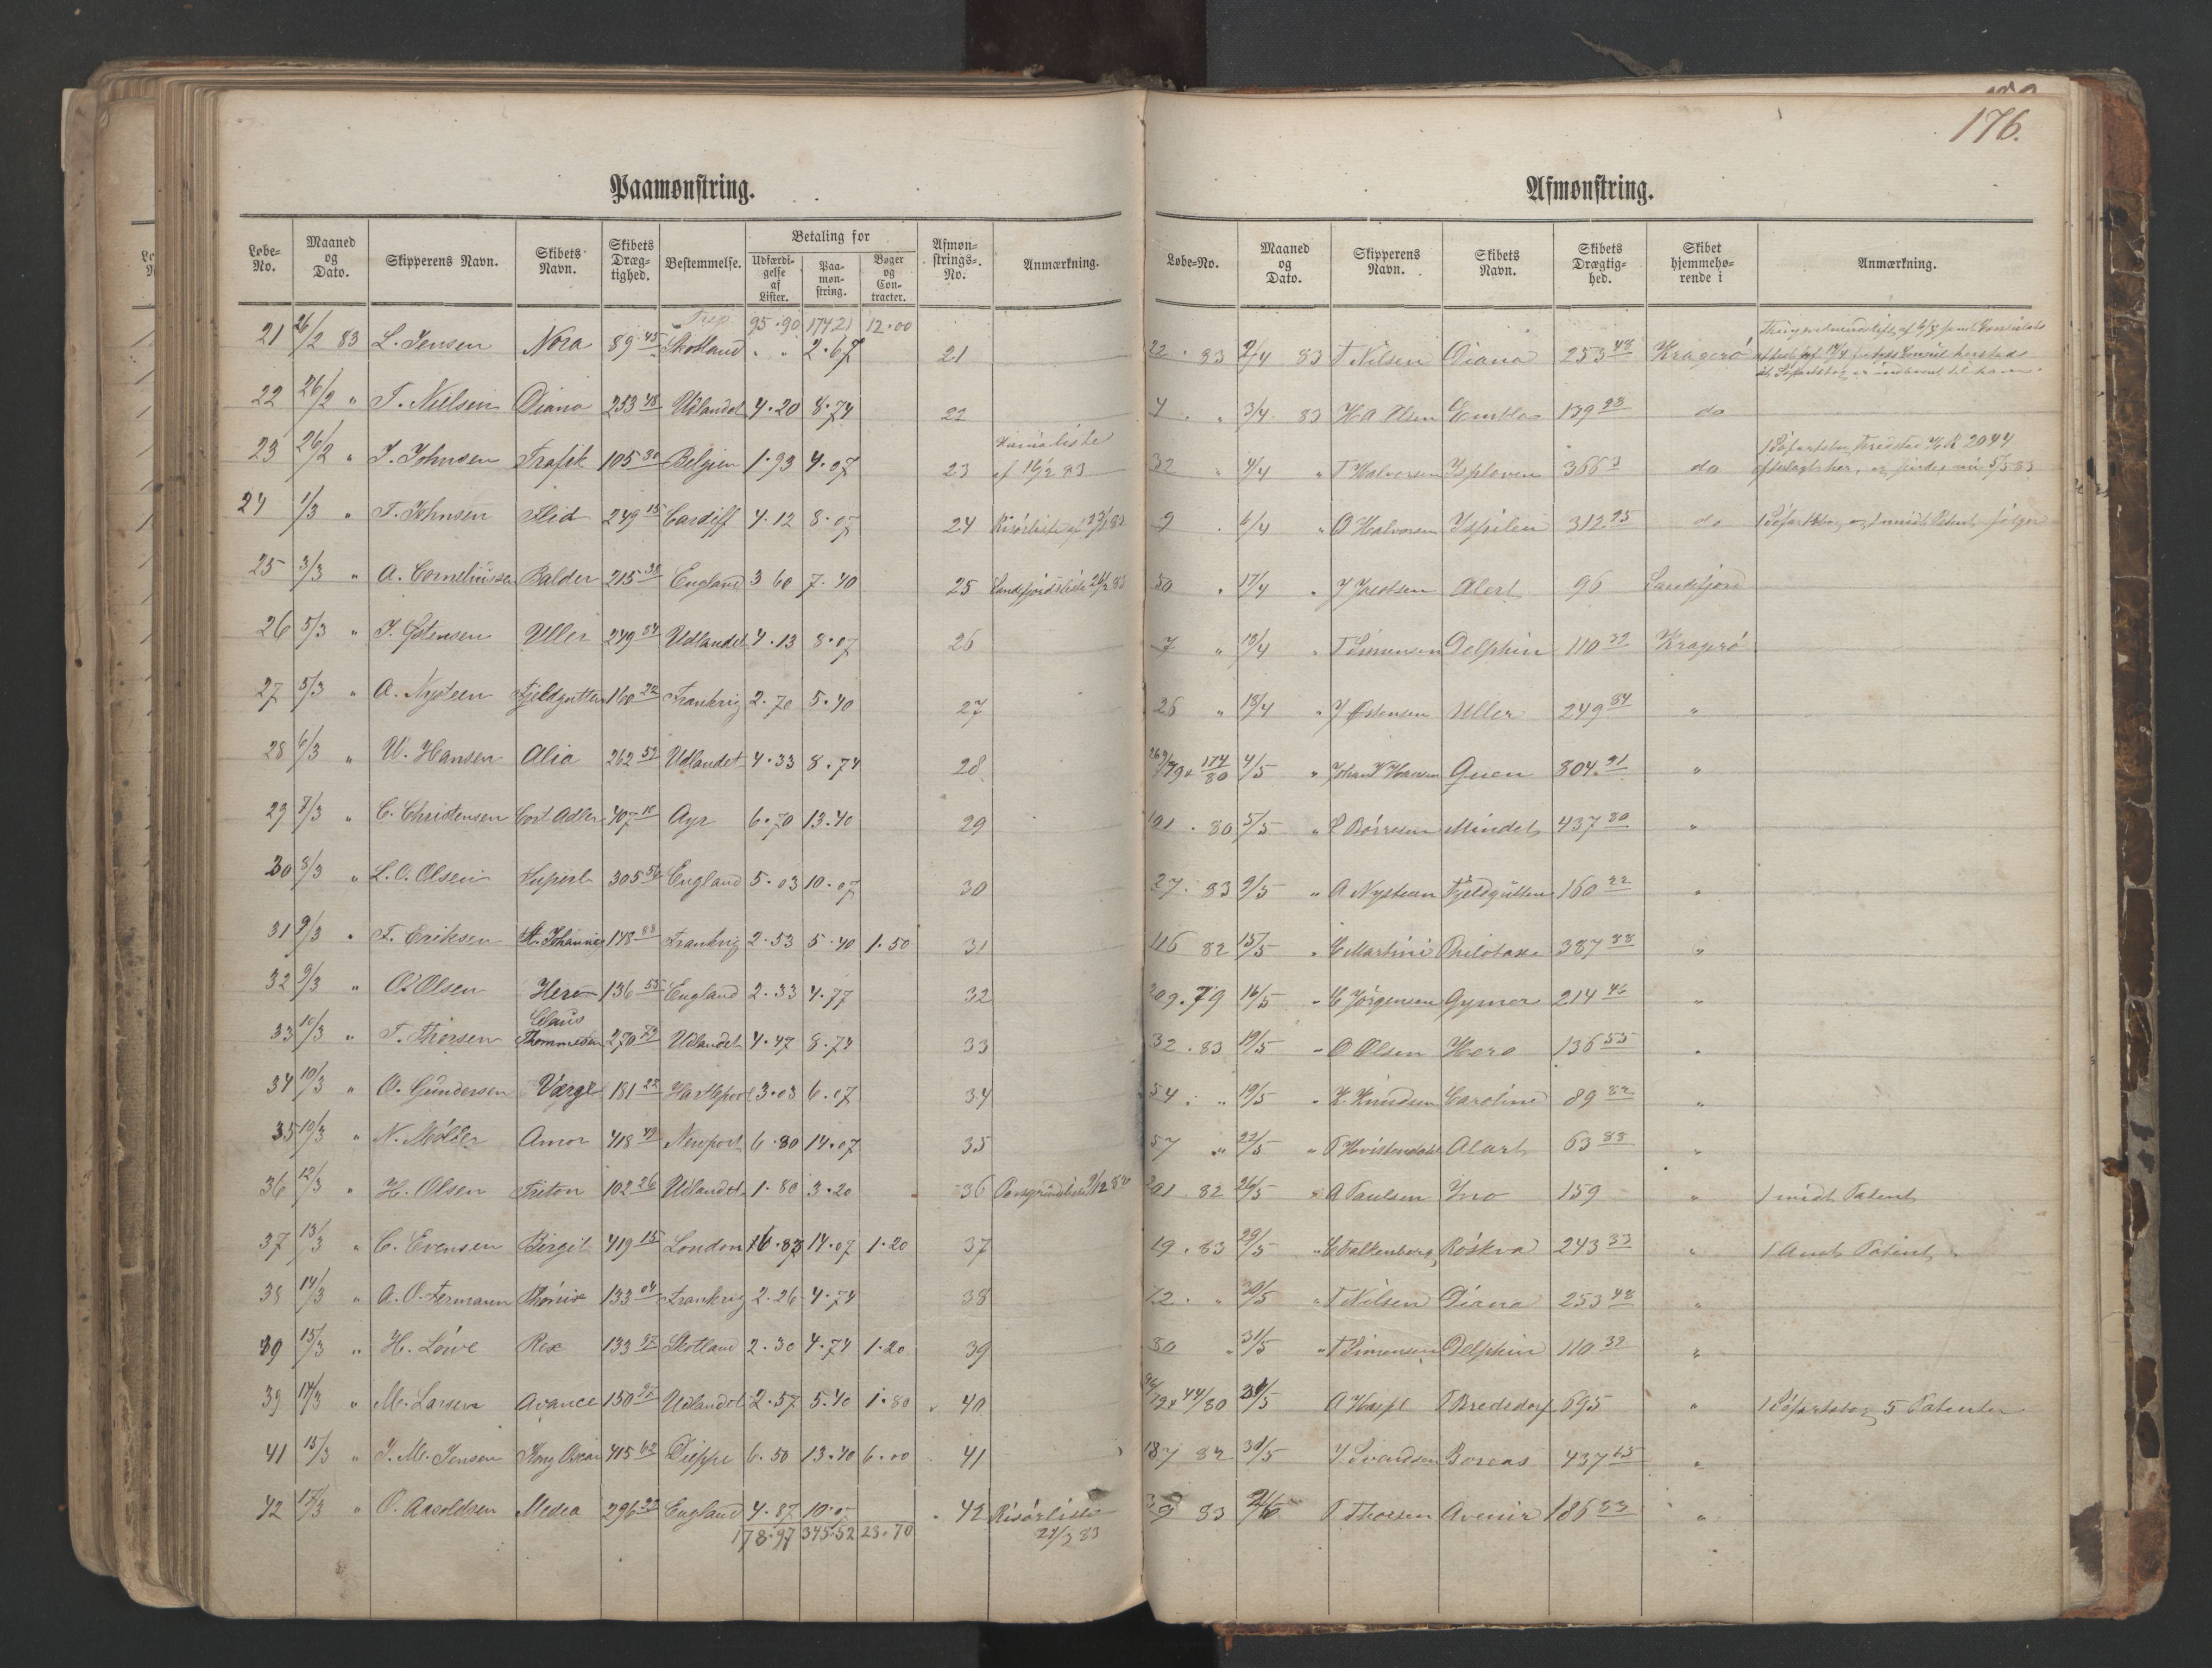 176.
Paamønstring.
Løbe-No. | Maaned og Dato. | Skipperens Navn. | Skibets Navn. | Skibets Dræg-tighed. | Bestemmelse. | Betaling for Udfærdi-gelse af Lister. | Paa-møn-string. | Bøger og Con-tracter. | Afmøn-strings-No. | Anmærkning.
95.90 174.21 12.00
21 26/2 83 L. Jensen Nora 89.45 Skotland " " 2.67 21
22 26/2 " T. Nielsen Diana 253 48 Udlandet 4.20 8.74 22
23 26/2 " J. Johnsen Trafik 105 30 Belgien 1.93 4.07 23 af 16/2 83
24 1/3 " T. Johnsen Flid 249 15 Cardiff 4.12 8.07 24 Risörliste af 23/1 83
25 3/3 " A. Corneliussen Balder 215 38 England 3 60 7.40 25 Sandefjordsliste 26/2 83
26 5/3 " J. Östensen Uller 249 84 Udlandet 4.13 8.07 26
27 5/3 " A. Nysteen Fjeldgutten 160 22 Frankrig 2.70 5.40 27
28 6/3 " W. Hansen Alia 262 52 Udlandet 4.33 8.74 28
29 7/3 " C. Christensen Cort Adler 407 10 Ayr 6.70 13.40 29
30 8/3 " L. O. Olsen Superb 305 56 England 5.03 10.07 30
31 9/3 " F. Eriksen St. Johannes 148 88 Frankrig 2.53 5.40 1.50 31
32 9/3 " O. Olsen Hero 136 55 England 2.33 4.77 32
33 10/3 " T. Thorsen Claus Thommesen 270 72 Udlandet 4.47 8.74 33
34 10/3 " O. Gundersen Værge 181 22 Hartlepool 3.03 6.07 34
35 10/3 " N. Möller Amor 418 49 Newport 6.80 14.07 35
36 12/3 " H. Olsen Triton 102 26 Udlandet 1.80 3.20 36 Porsgrundsliste
37 13/3 " C. Evensen Birgit 419 15 London 6.87 14.07 1.20 37
38 14/3 " A. O. Fermann Phönix 133 04 Frankrig 2.26 4.74 38
39 15/3 " H. Löwe Rex 133 97 Skotland 2.30 4.74 1.20 39
39 14/3 " M. Larsen Avance 150 97 Udlandet 2.57 5.40 1.80 40
41 15/3 " J. M. Jensen Kong Oscar 415 62 Dieppe 6.50 13.40 6.00 41
42 17/3 " O. Aasoldsen Medea 296 32 England 4.87 10.07 42 Risörliste
178.97 345.52 23.70 21/3 83
Afmønstring.
Løbe-No. | Maaned og Dato. | Skipperens Navn. | Skibets Navn. | Skibets Drægtig-hed. | Skibet hjemmehø-rende i | Anmærkning.
22 . 83 2/4 83 T Nilsen Diana 253 48 Kragerö
4 . " 3/4 83 H A Olsen 139 28 do
32 " 4/4 " T Halvorsen Isploven 366 3 do
9 . 6/4 " O Halvorsen Ispilen 312.95 do
50 " 17/4 " J Jacobsen Alert 96 Sandefjord
7 " 18/4 " T Simonsen Delphin 110 32 Kragerö
26 " 18/4 " J Østensen Uller 249 84 "
174/80 4/5 " Johan Hansen Gueen 304.21 "
101 . 80 5/5 " Börresen Mindet 437 80 "
27 . 83 9/5 " A Nysteen Fjeldgutten 160 22 "
116 82 15/5 " C Martini Philotax 387 88 "
209.79 16/5 " C Jörgensen Gymer 214 46 "
32 . 83 19/5 " O Olsen Hero 136 55 "
54 . " 19/5 " K. Knudsen Caroline 89 82 "
57 " 22/5 " Hvistendahl Alart 63 88 "
201 82 26/5 " A Paulsen Ino 159 " 1 midl Patent
19 . 83 29/5 " C Falkenberg Röskva 243 33 " 1 Amts Patent
72 . " 30/5 " T Nilsen Diana 253 48 "
80 " 31/5 " T Simonsen Delphin 110 32 "
44/80 31/5 T Bredsdorf 695 " 1 Söfartsbog 5 Patenter
187 82 31/5 J Svendsen Boreas 437 65 "
39 83 2/6 T Thorsen Avenir 186 33 "